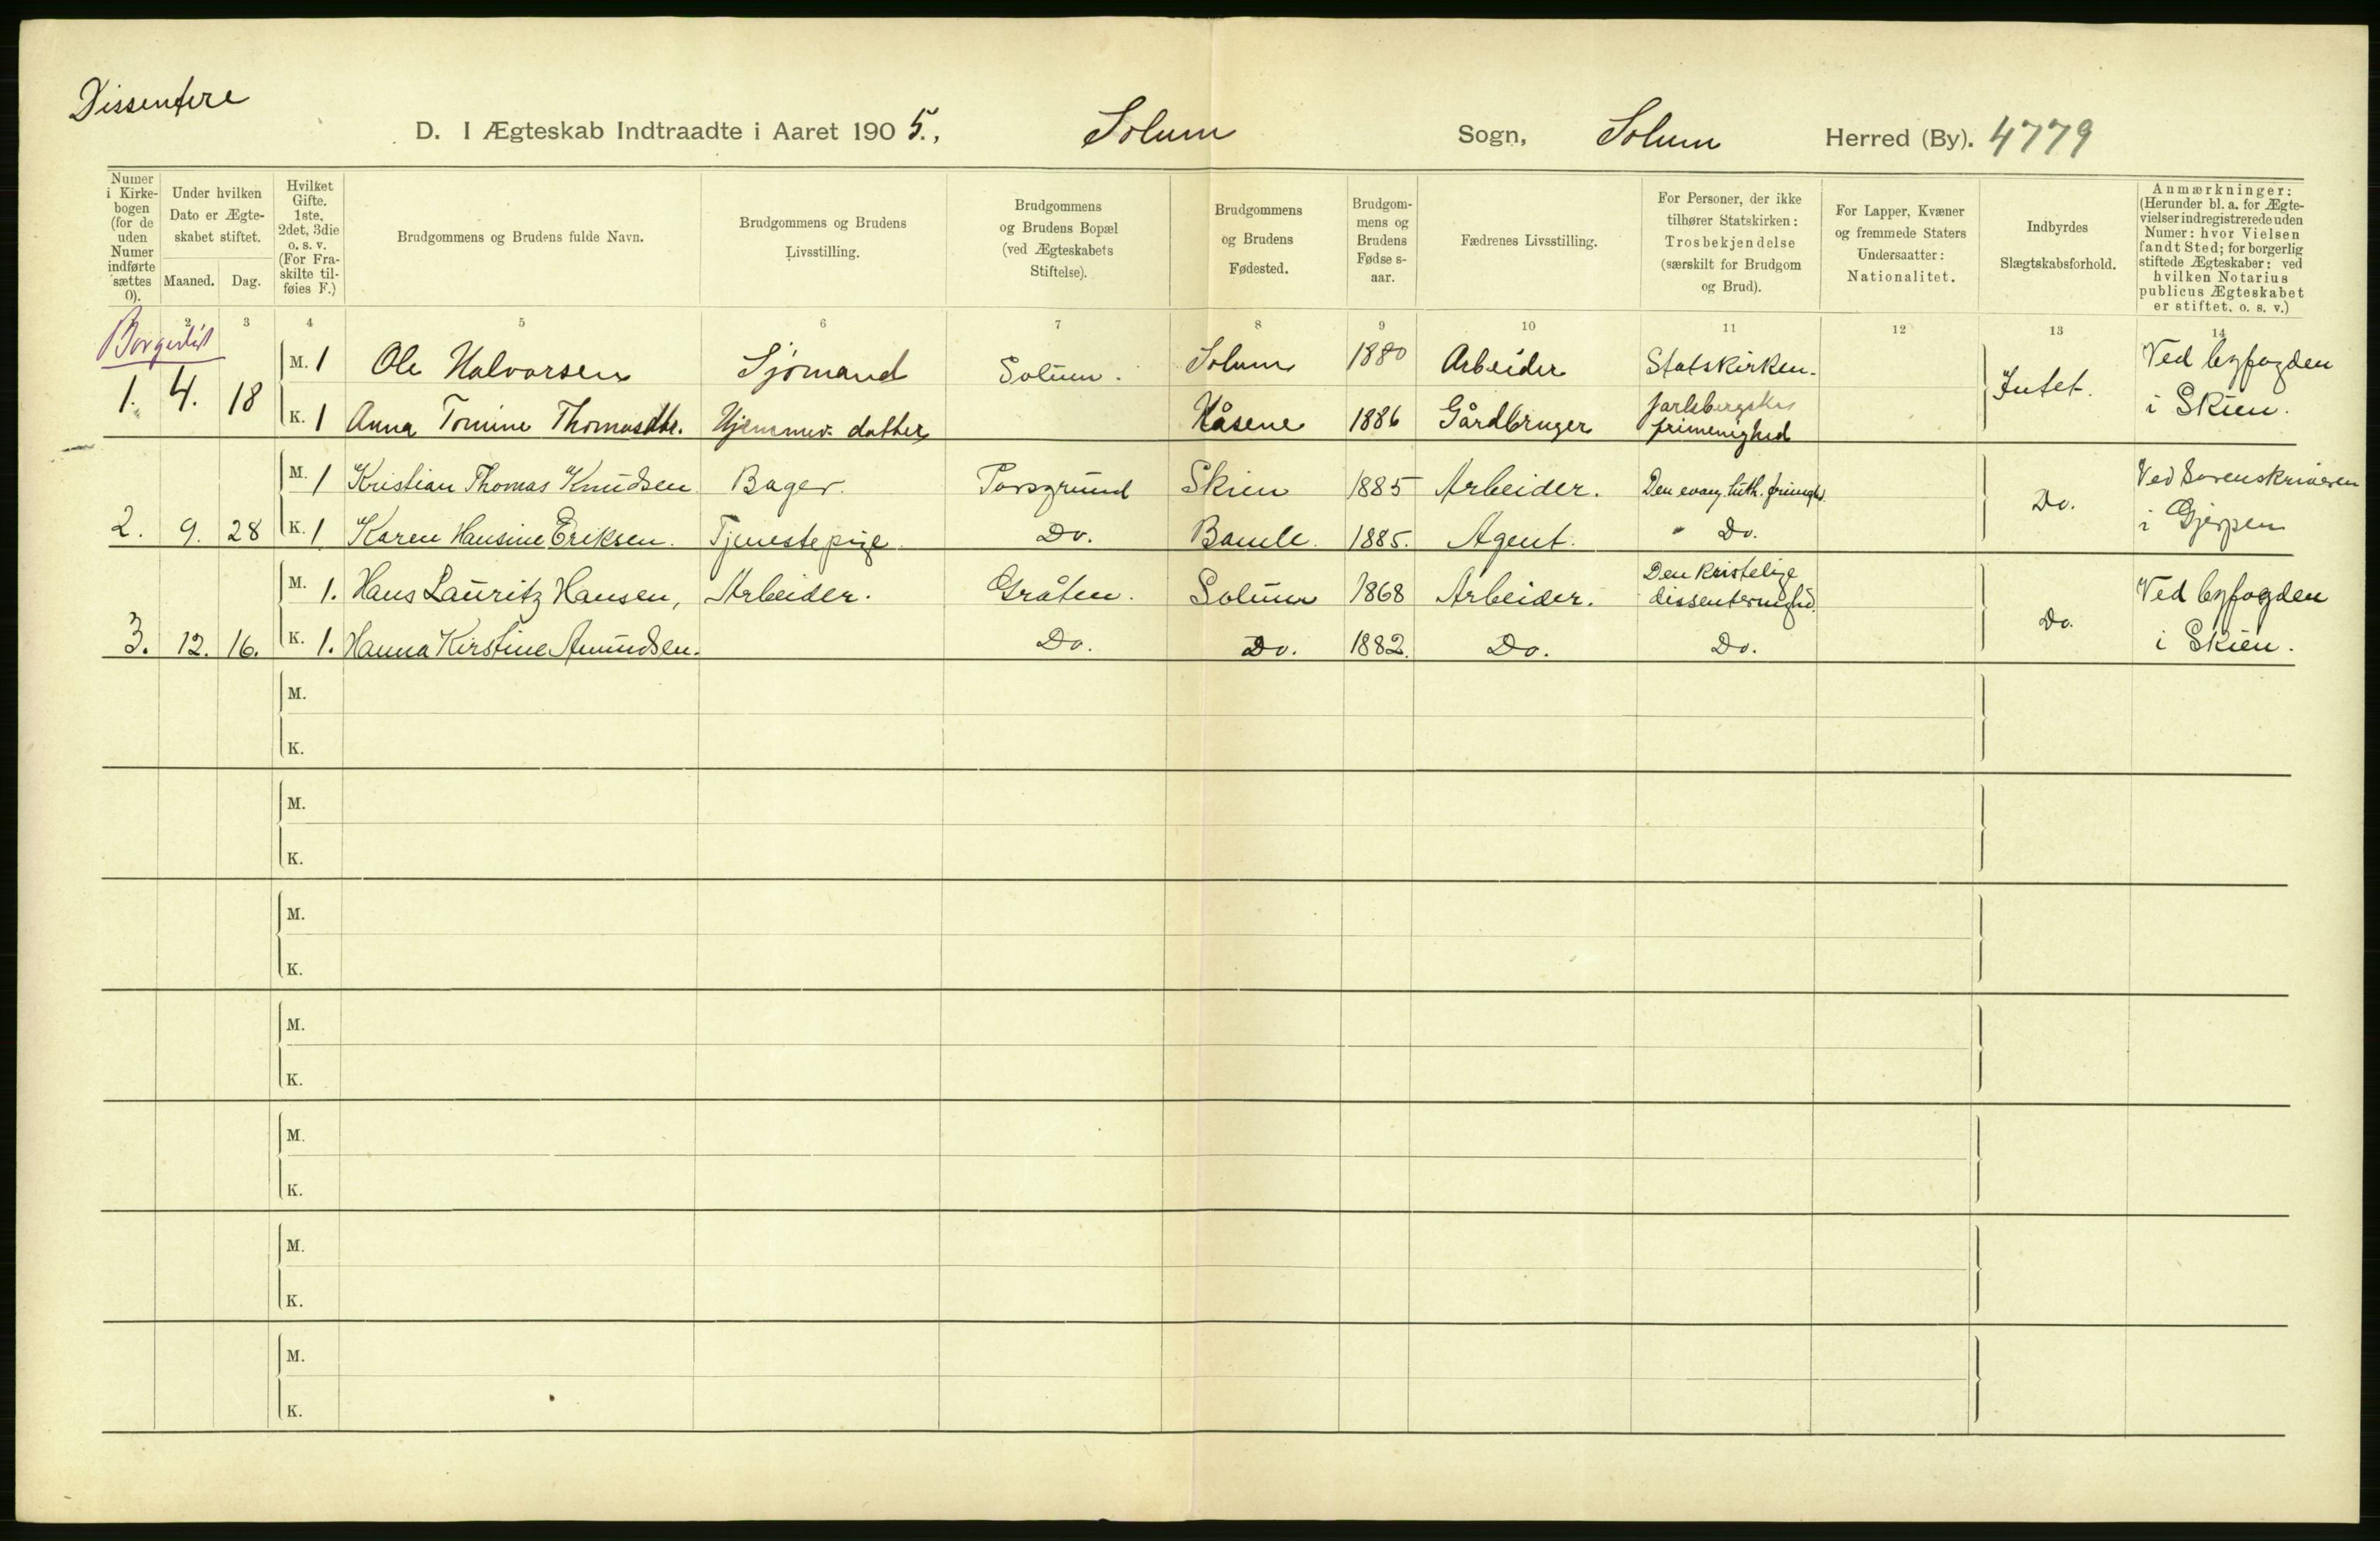 Dissentere
D. I Ægteskab Indtraadte i Aaret 1905., Solum Sogn, Solum Herred (By). 4779
Numer i Kirkebogen (for de uden Numer indførte sættes 0).
Under hvilken Dato er Ægteskabet stiftet.
Maaned. Dag.
Hvilket Gifte. 1ste, 2det, 3die o. s. v. (For Fraskilte tilføies F.)
Brudgommens og Brudens fulde Navn.
Brudgommens og Brudens Livsstilling.
Brudgommens og Brudens Bopæl (ved Ægteskabets Stiftelse).
Brudgommens og Brudens Fødested.
Brudgommens og Brudens Fødse s-aar.
Fædrenes Livsstilling.
For Personer, der ikke tilhører Statskirken: Trosbekjendelse (særskilt for Brudgom og Brud).
For Lapper, Kvæner og fremmede Staters Undersaatter: Nationalitet.
Indbyrdes Slægtskabsforhold.
Anmærkninger: (Herunder bl. a. for Ægtevielser indregistrerede uden Numer: hvor Vielsen fandt Sted; for borgerlig stiftede Ægteskaber: ved hvilken Notarius publicus Ægteskabet er stiftet. o. s. v.)
2 3 4 5 6 7 8 9 10 11 12 13 14
Borgerligt
M. 1 Ole Halvorsen Sjømand Solum. Solum 1880 Arbeider Statskirken. Intet. Ved byfogden
1. 4. 18 K. 1 Anna Tomine Thomasdtr. Hjemmev. datter Våsene 1886 Gårdbruger Jarlsbergske frimenighed i Skien.
M. 1 Kristian Thomas Knudsen Bager. Porsgrund Skien 1885 Arbeider. Den evang. luth. frimgh. Do. Ved Sorenskriveren
2. 9. 28 K. 1 Karen Hansine Eriksen. Tjenestepige. Do. Bamle. 1885. Agent. Do. i Gjerpen
M. 1. Hans Lauritz Hansen, Arbeider. Gråten. Solum 1868 Arbeider. Den kristelige dissentermghd. Do. Ved byfogden
3. 12. 16. K. 1. Hanna Kirstine Amundsen. Do. Do. 1882. Do. Do. i Skien.
M.
K.
M.
K.
M.
K.
M.
K.
M.
K.
M.
K.
M.
K.